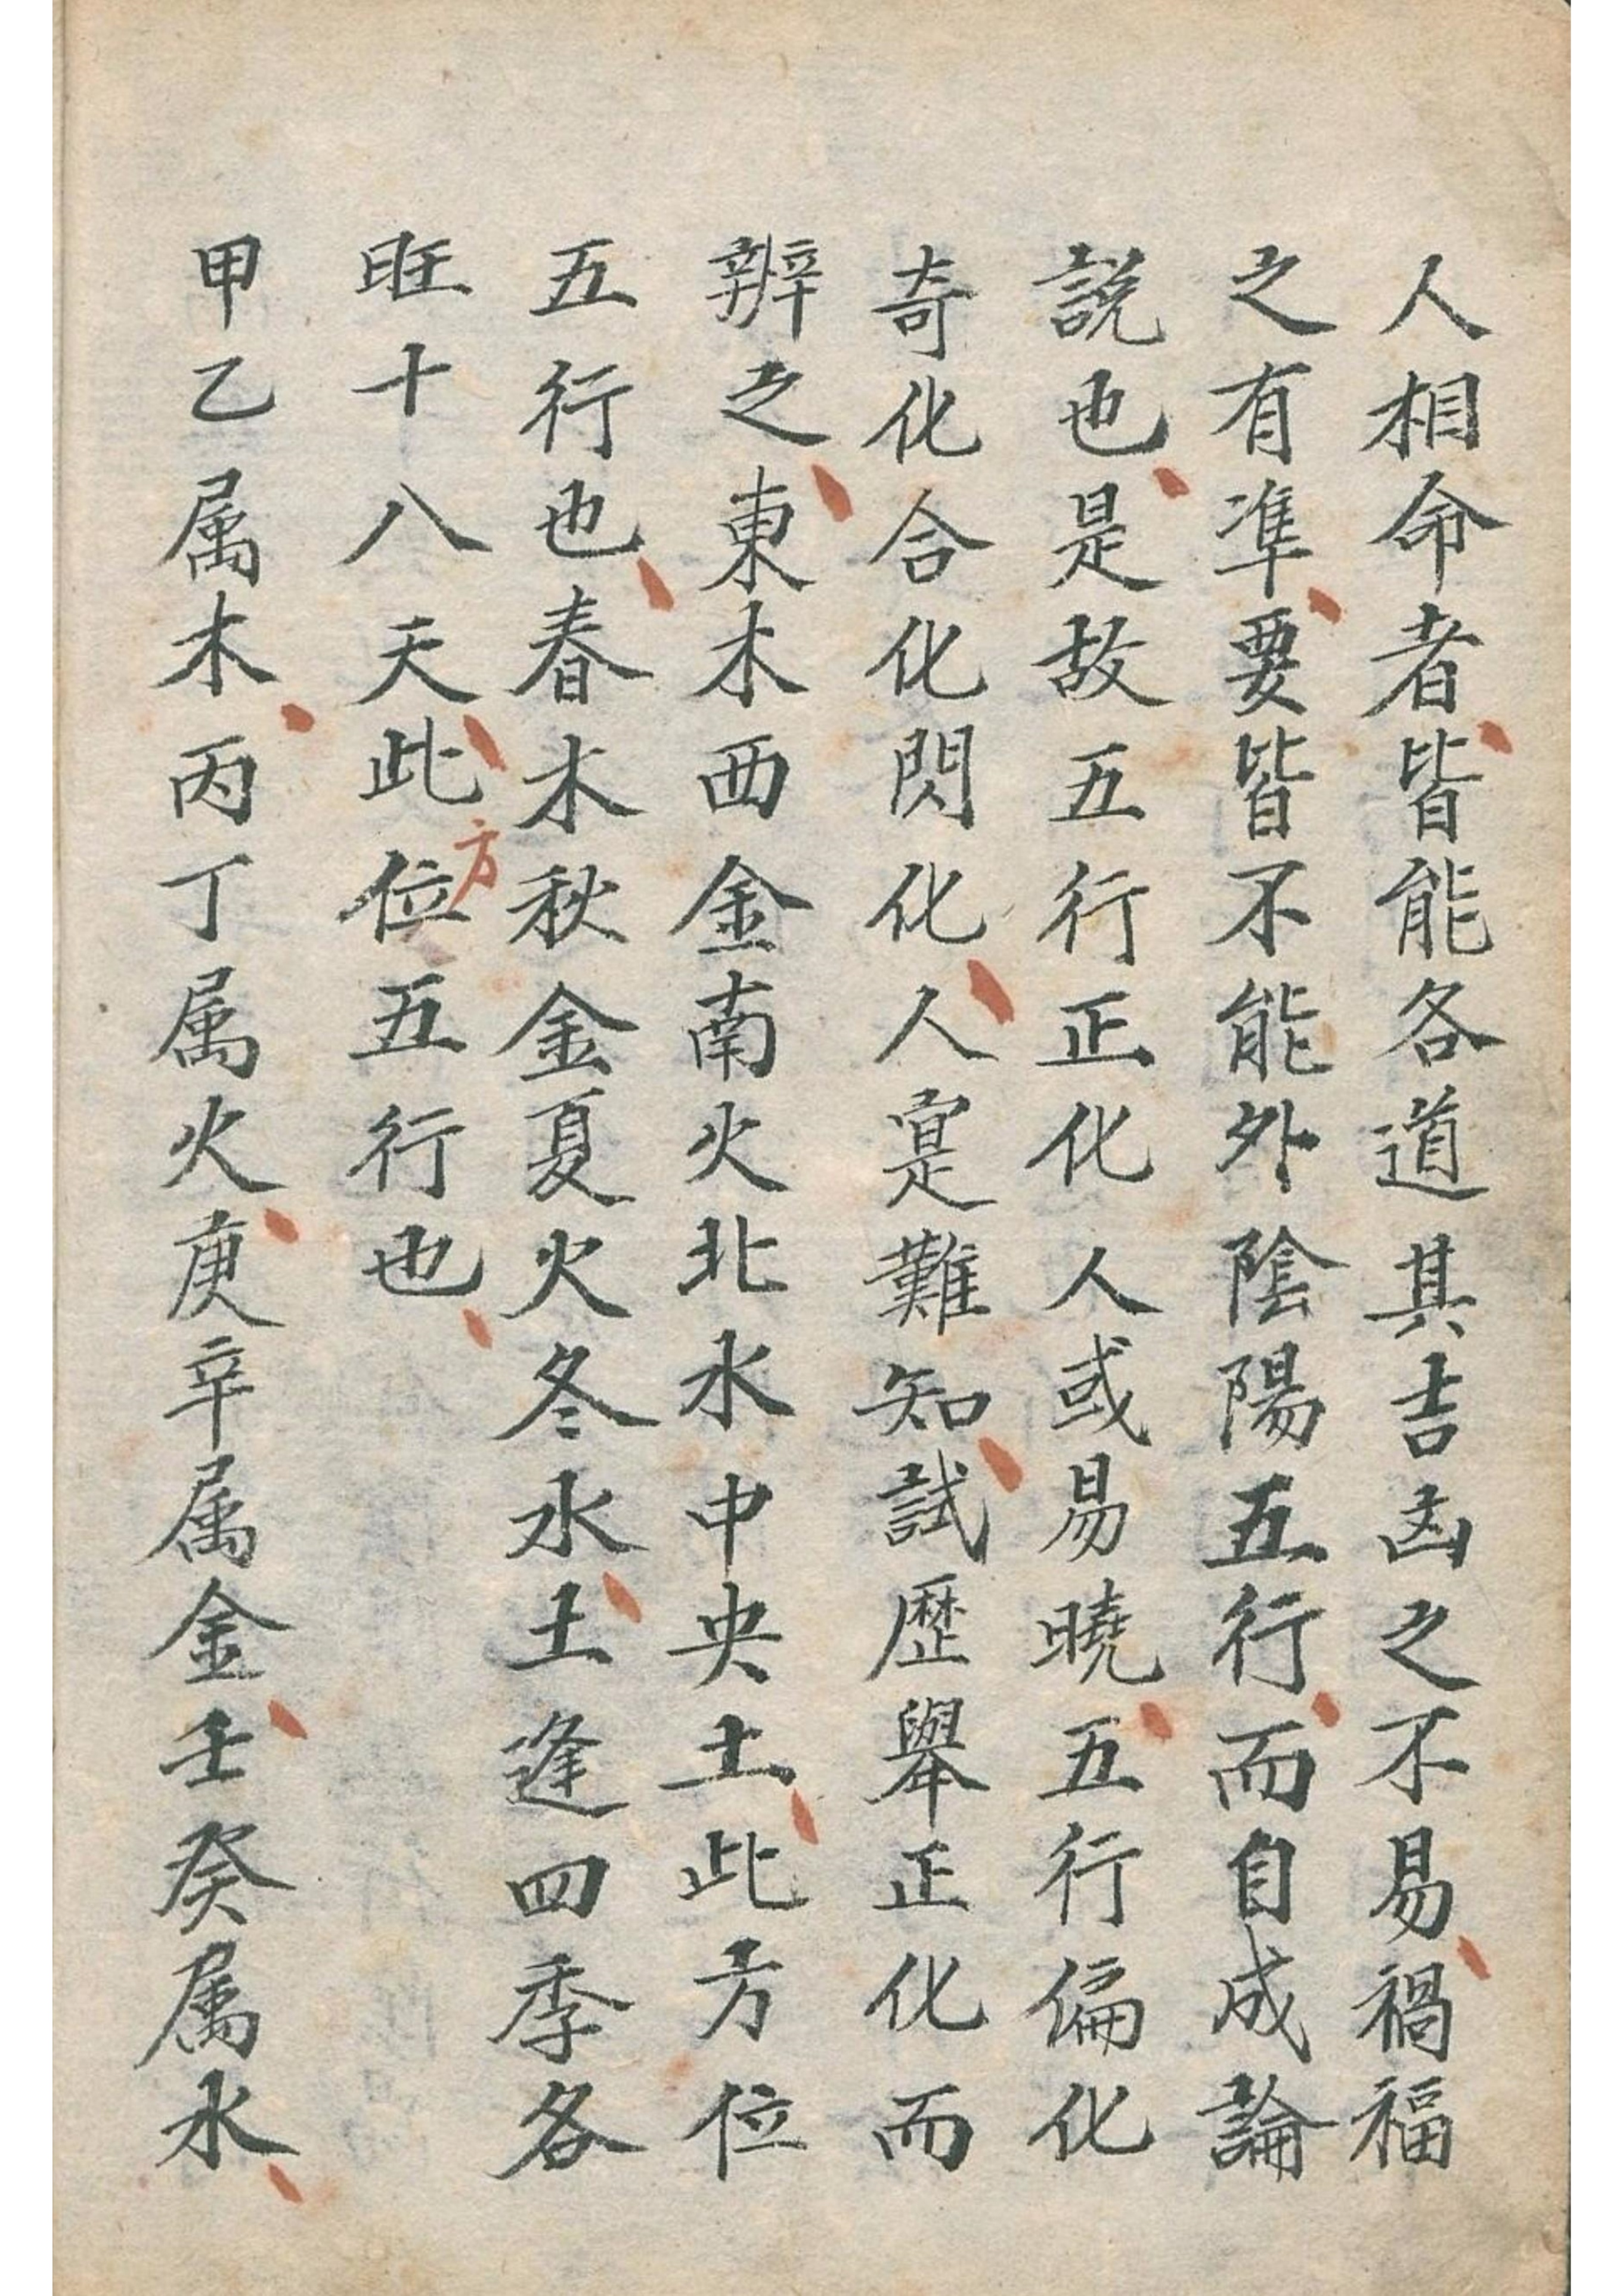 人相命者皆能各道其吉凶之不易禍福
之有準要皆不能外陰陽五行而自成論
説也是故五行正化人或易曉五行偏化
奇化合化化閃化人寔難知試歷舉正化而
辨之東木西金南火北水中央土此方位
五行也春木秋金夏火冬水土逢四季各
旺十八天此方位五行也
甲乙属木丙丁属火庚辛属金壬癸属水